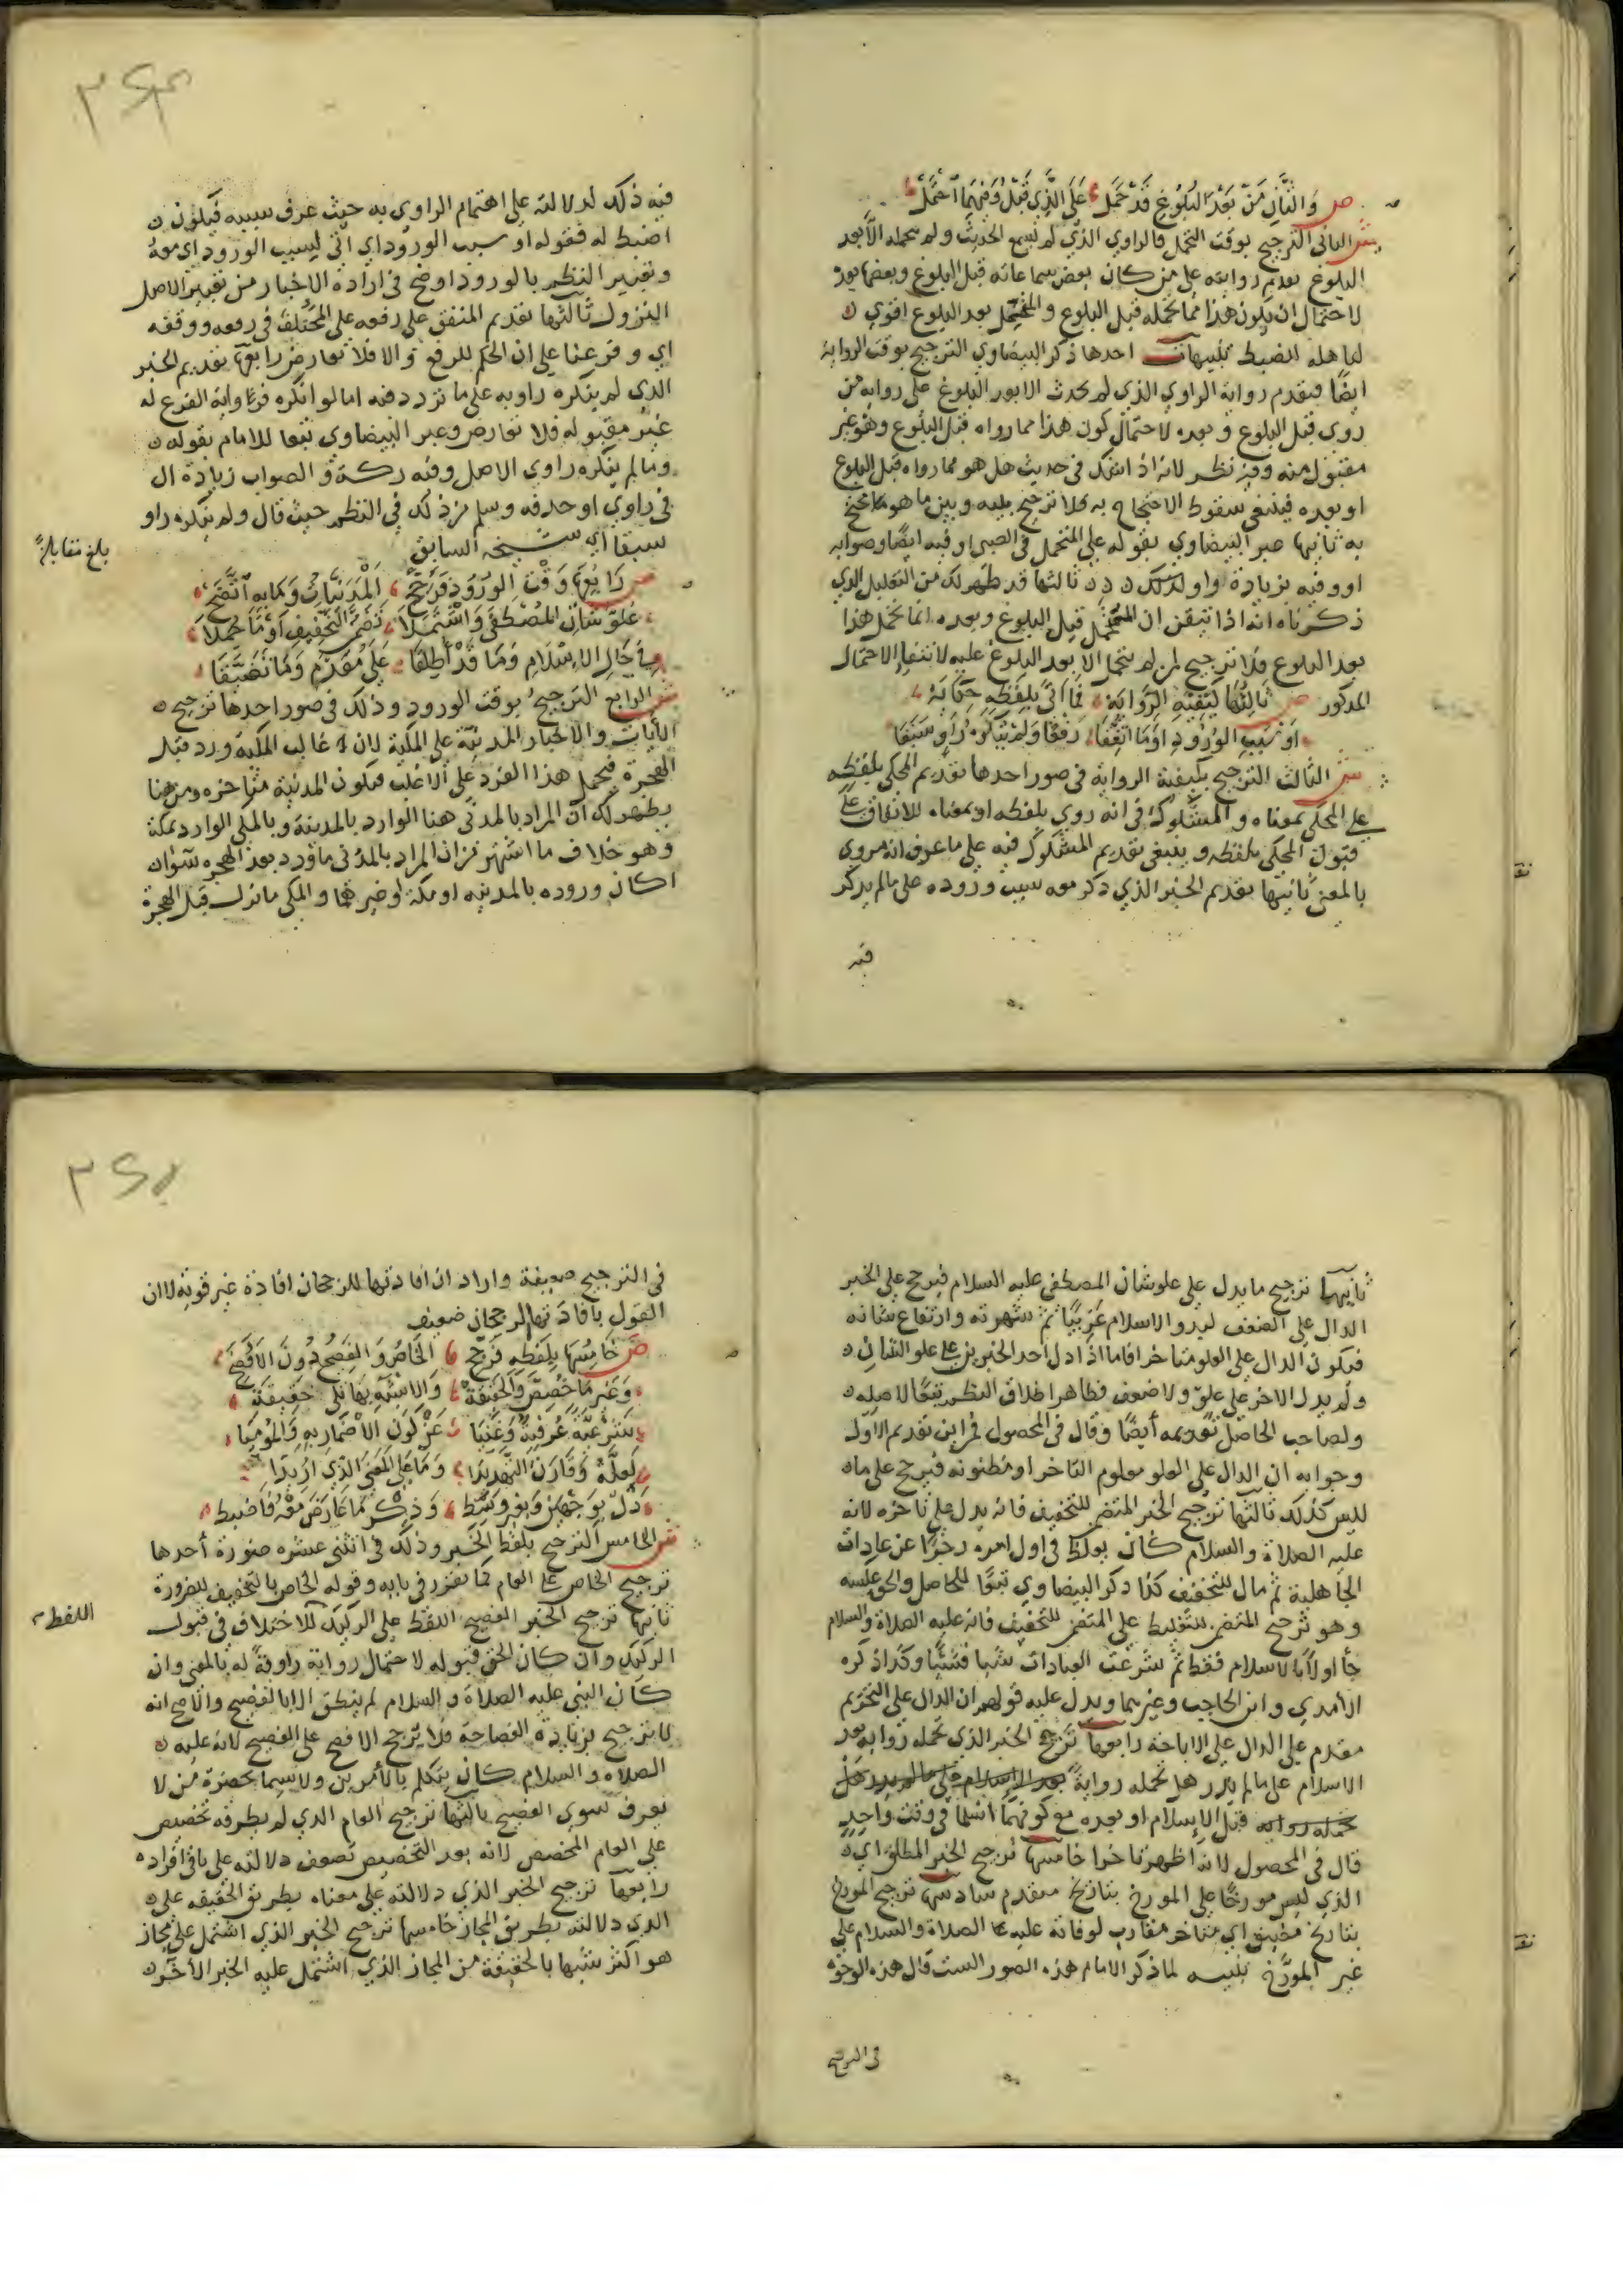 ص وَالثَّانِ مَنْ بَعْدَ البُلُوغِ قَدْ حَمَلْ عَلَى الَّذِي قَبْلُ وَفِيهِمَا احْتَمَلْ
ش الثاني الترجيح بوقت التحمل فالراوي الذي لم يسمع الحديث ولم يتحمله الا بعد
البلوغ تقدم روايته على من كان بعض سماعاته قبل البلوغ وبعضها بعده
لاحتمال ان يكون هذا مما تحمله قبل البلوغ والمتحمل بعد البلوغ اقوي
لتاهله الضبط تنبيهات احدها ذكر البيضاوي الترجيح بوقت الرواية
ايضا فيقدم رواية الراوي الذي لم يحدث الا بعد البلوغ على رواية من
روي قبل البلوغ و بعده لاحتمال كون هذا مما رواه قبل البلوغ وهو غير
مقبول منه وفيه نظر لانه اذا شك في حديث هل هو مما رواه قبل البلوغ
او بعده فينبغي سقوط الاحتجاج به فلا ترجيح بينه وبين ما هو محتج
به ثانيها عبر البيضاوي بقوله على المتحمل في الصبي او فيه ايضا وصوابه
او وفيه بزيادة واو لذلك ثالثها قد ظهر لك من التعليل الذي
ذكرناه انه اذا تيقن ان المتحمل قبل البلوغ وبعده انما تحمل هذا
بعد البلوغ فلا ترجيح لمن لم يتحمل الا بعد البلوغ عليه لانتفاء الاحتمال
المذكور ص ثَالِثُهَا كَيْفِيَّةِ الرِّوَايَةْ فَمَا أَتَى بِلَفْظِهِ حِكَايَةْ
أَوْ سَبَبِ الوُرُودِ أَوْ مَا اتَّفَقَا رَفْعًا وَلَمْ يُنْكِرْهُ رَاوٍ سَبَقَا
ش الثالث الترجيح بكيفية الرواية في صور احدها تقديم المحكي بلفظه
على المحكي بمعناه والمشكوك في انه روي بلفظه او بمعناه للاتفاق على
قبول المحكي بلفظه وينبغي تقديم المشكوك فيه على ما عرف انه مروي
بالمعنى ثانيها تقديم الخبر الذي ذكر معه سبب وروده على ما لم يذكر
فيه
فيه ذلك لدلالته على اهتمام الراوي به حيث عرف سببه فيكون
اضبط له فقوله او سبب الورود اي اتى لسبب الورود اي معه
وتعبير النظم بالورود اوضح في ارادة الاخبار من تعبير الاصل
النزول ثالثها تقديم المتفق على رفعه على المختلف في رفعه ووقفه
اي وفرعنا على ان الحكم للرفع والا فلا تعارض رابعها تقديم الخبر
الذي لم ينكره راويه على ما تردد فيه اما لو انكره فرواية الفرع له
غير مقبوله فلا تعارض وعبر البيضاوي تبعا للامام بقوله
وما لم ينكره راوي الاصل وفيه ركة والصواب زيادة ال
في راوي او حذفه وسلم من ذلك في النظم حيث قال ولم ينكره راو
سبقا اي شيخه السابق
بلغ مقابلة
ص رَابِعُهَا وَقْتَ الوُرُودِ فَرَجَحْ المَدَنِيَّاتُ وَمَا بِهِ اتَّضَحْ
عُلُوُّ شَانِ المُصْطَفَى وَاشْتَمَلَا تَضَمُّنَ التَّخْفِيفِ أَوْ مَا حُمِلَا
فِي حَالِ الإِسْلَامِ وَمَا قَدْ أُطْلِقَا عَلَى مُقَدَّمٍ وَمَا تَضَيَّقَا
ش الرابع الترجيح بوقت الورود وذلك في صور احدها ترجيح
الايات والاخبار المدنية على المكية لان غالب المكية ورد قبل
الهجرة فيحمل هذا الفرد على الاغلب فيكون المدنية متاخره ومن هنا
يظهر لك ان المراد بالمدني هنا الوارد بالمدينة وبالمكي الوارد بمكة
وهو خلاف ما اشتهر من ان المراد بالمدني ما ورد بعد الهجره سواء
اكان وروده بالمدينه او مكة او غيرهما والمكي ما نزل قبل الهجرة
ثانيها ترجيح ما يدل على علو شان المصطفى عليه السلام فيرجح على الخبر
الدال على الضعف لبدو الاسلام غريبا ثم شهرته وارتفاع شانه
فيكون الدال على العلو متاخرا فاما اذا دل احد الخبرين على علو الشان
ولم يدل الاخر على علو ولا ضعف فظاهر اطلاق النظم تبعا لاصله
ولصاحب الحاصل تقديمه أيضا وقال في المحصول تقديم الاول
وجوابه ان الدال على العلو معلوم التاخر او مظنونه فيرجح على ما
ليس كذلك ثالثها ترجيح الخبر المتضمن للتخفيف فانه يدل على تاخره لانه
عليه الصلاة والسلام كان يغلظ في اول امره زجرا عن عادات
الجاهلية ثم مال للتخفيف كذا ذكر البيضاوي تبعا للحاصل والحق عكسه
وهو ترجيح المتضمن للتغليظ على المتضمن للتخفيف فانه عليه الصلاة والسلام
جا اولا بالاسلام فقط ثم شرعت العبادات شيئا فشيئا وكذا ذكره
الامدي وابن الحاجب وغيرهما ويدل عليه قولهم ان الدال على التحريم
مقدم على الدال على الاباحة رابعها ترجح الخبر الذي تحمله راويه بعد
الاسلام على ما لم يدر هل تحمله رواية بعد الاسلام على ما لم يدر هل
تحمله روايه قبل الاسلام او بعده مع كونهما اسلما في وقت واحد
قال في المحصول لانه اظهر تاخرا خامسها ترجيح الخبر المطلق اي
الذي ليس مورخا على المورخ بتاريخ متقدم سادسها ترجيح المورخ
بتاريخ مضيق اي متاخر مقارب لوفاته عليه الصلاة والسلام على
غير المورخ تنبيه لما ذكر الامام هذه الصور الست قال هذه الوجوه
في الترجيح
في الترجيح ضعيفة واراد ان افادتها للرجحان افادة غير قوية لا ان
القول بافادتها الرجحان ضعيف
ص خَامِسُهَا بِلَفْظِهِ فَرَجِّحِ الخَاصُّ وَالفَصِيحُ دُونَ الأَفْصَحِ
وَغَيْرِ مَا خُصِّصَ وَالحَقِيقَةْ وَالاشْبَهُ بِهَا تَلِي حَقِيقَةْ
شَرْعِيَّةٌ عُرْفِيَّةٌ وَغَنِيَا عَنْ كَوْنِ الاضْمَارِ بِهِ وَالمُومِيَا
لِعِلَّةٍ وَقَارَنَ التَّهْدِيدَا وَمَا عَلَى المَعْنَى الَّذِي أُرِيدَا
دَلَّ بِوَجْهَيْنِ وَبِغَيْرِ وَسَطِ وَذِكْرِ مَا عَارَضَ مَعْهُ فَاضْبِطِ
ش الخامس الترجيح بلفظ الخبر وذلك في اثنتي عشره صورة أحدها
ترجيح الخاص على العام كما تقرر في بابه وقوله الخاص بالتخفيف للضرورة
ثانيها ترجيح الخبر الفصيح اللفظ على الركيك للاختلاف في قبول
اللفظ
الركيك وان كان الحق قبوله لاحتمال رواية راويه له بالمعنى وان
كان النبي عليه الصلاة والسلام لم ينطق الا بالفصيح والاصح انه
لا ترجيح بزيادة الفصاحة فلا يرجح الافصح على الفصيح لانه عليه
الصلاة والسلام كان يتكلم بالأمرين ولا سيما بحضرة من لا
يعرف سوى الفصيح ثالثها ترجيح العام الذي لم يطرقه تخصيص
على العام المخصص لانه بعد التخصيص تضعف دلالته على باقي افراده
رابعها ترجيح الخبر الذي دلالته على معناه بطريق الحقيقه على
الذي دلالته بطريق المجاز خامسها ترجيح الخبر الذي اشتمل على مجاز
هو اكثر شبها بالحقيقة من المجاز الذي اشتمل عليه الخبر الاخر